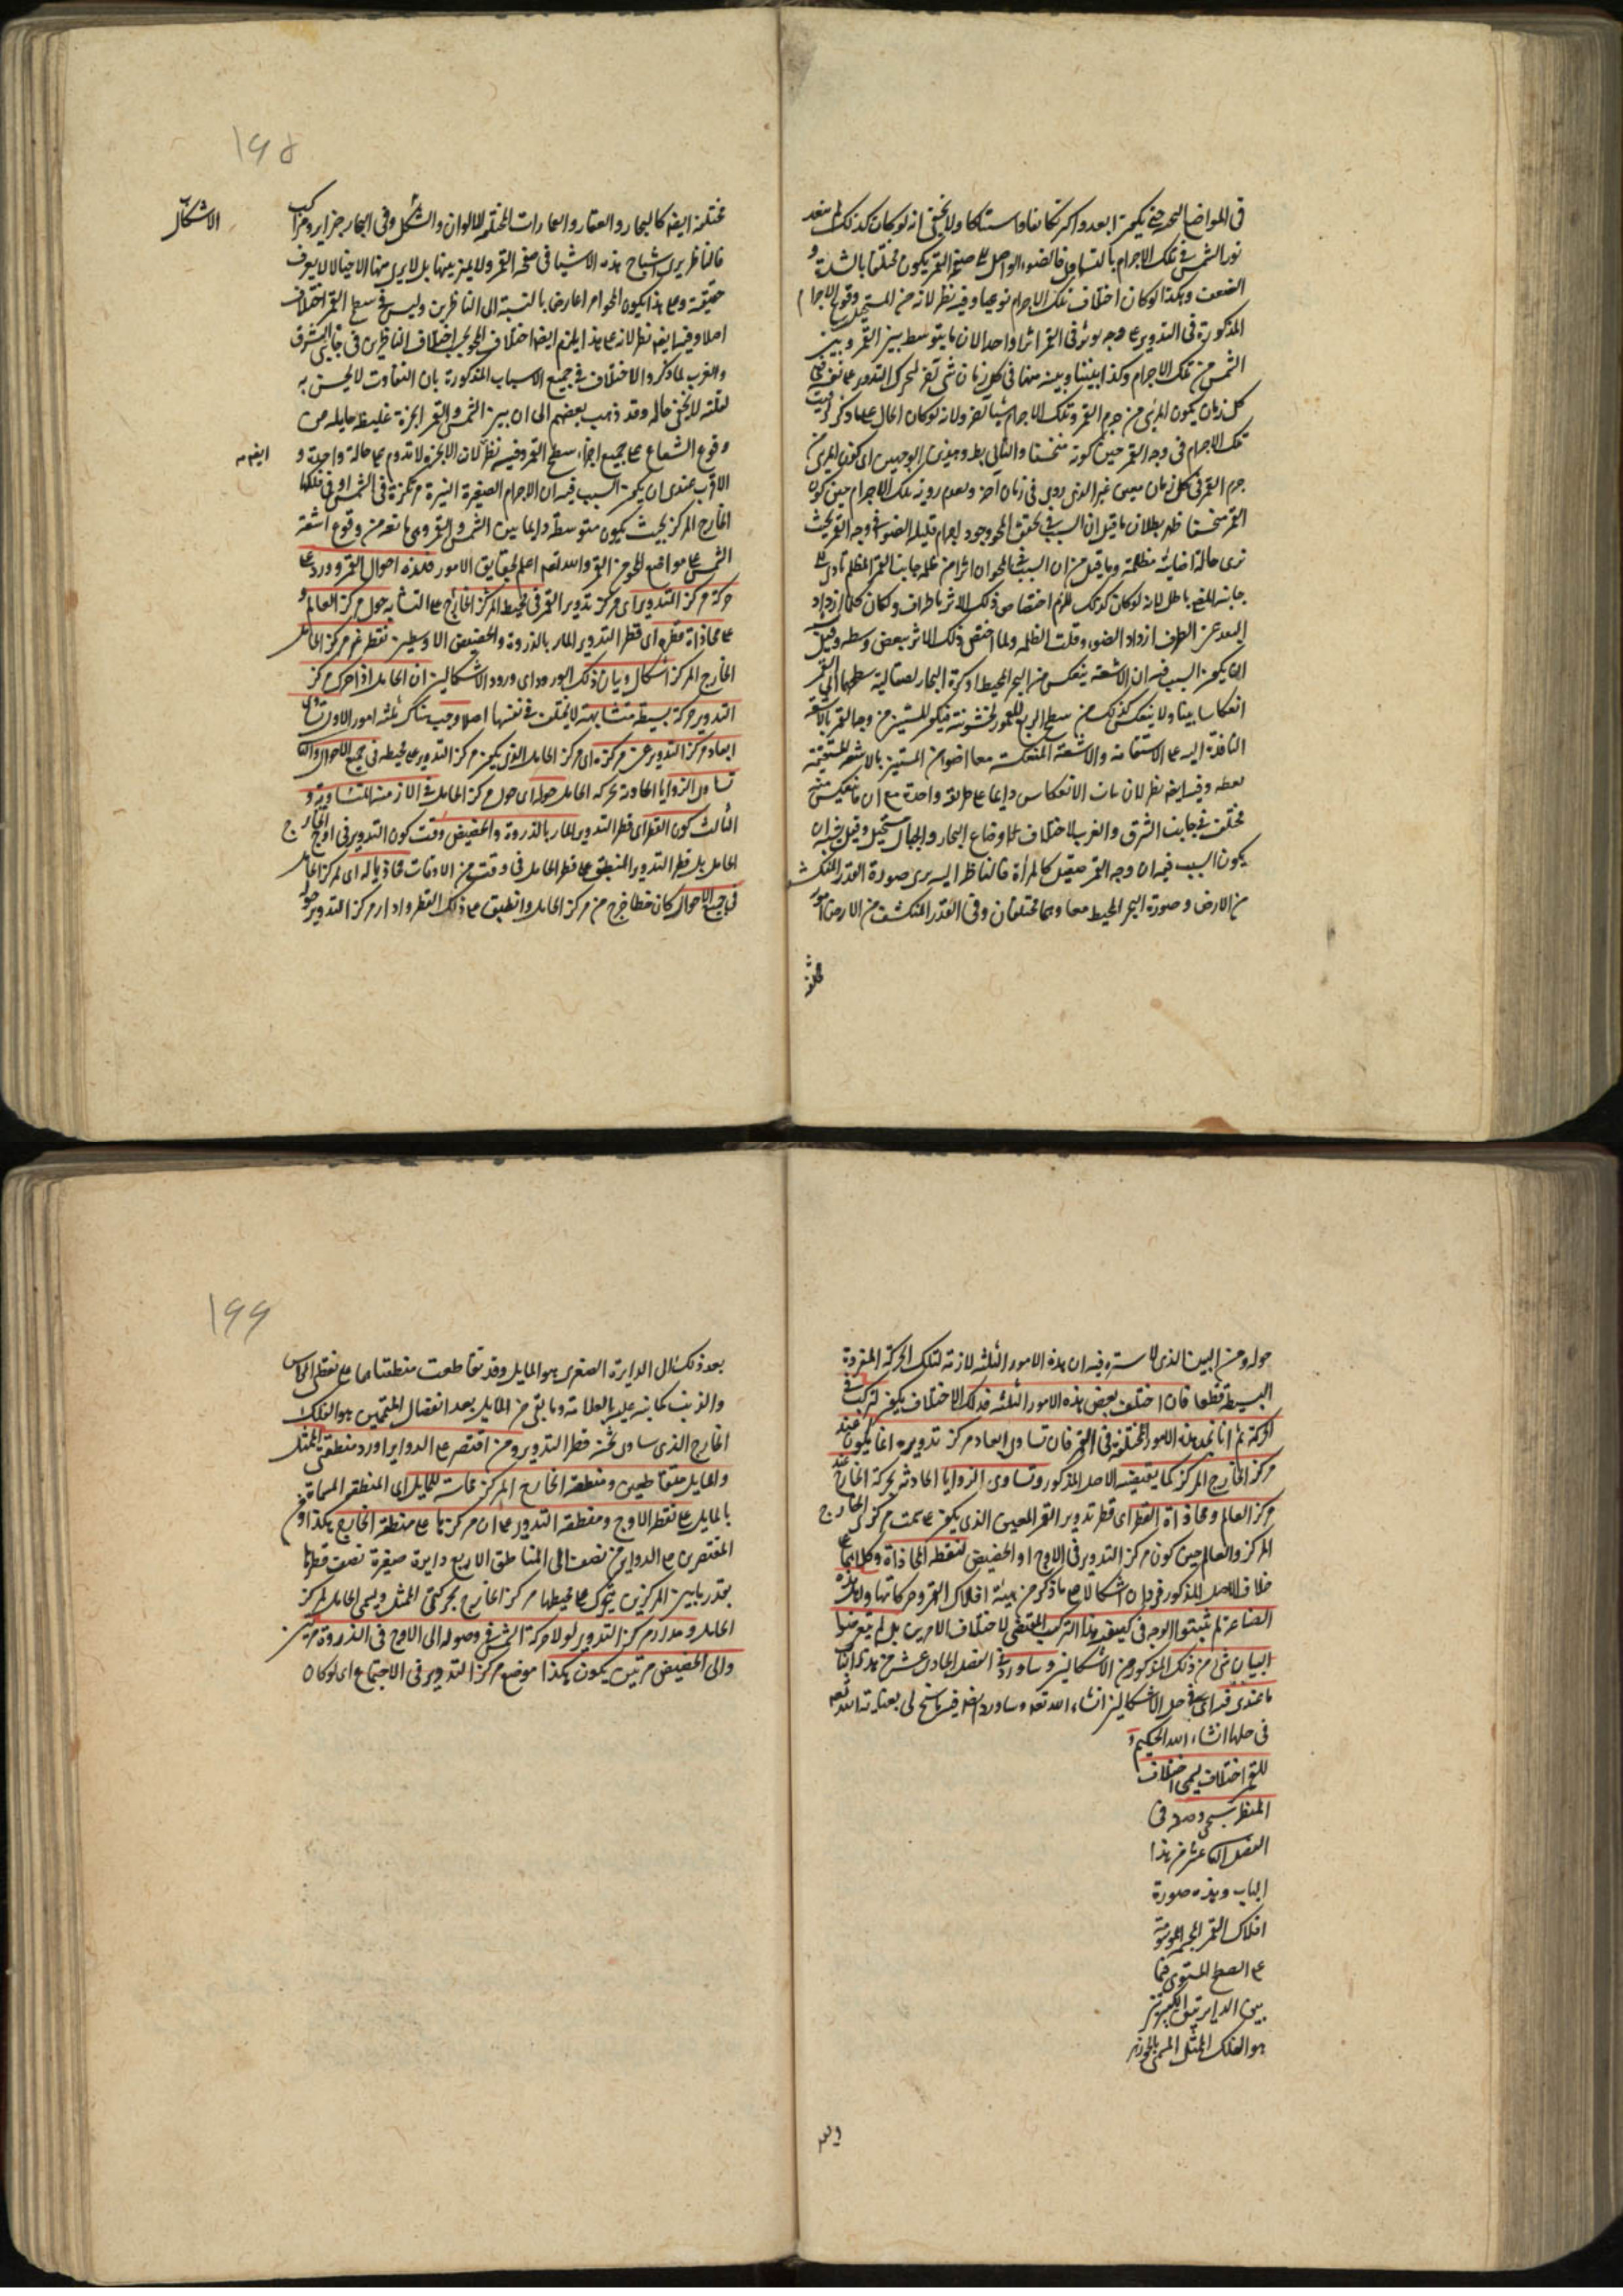 في المواضع البحرية يكون ابعد واكثر تكاثفا واستمساكا ولا يخفى انه لو كان كذلك لم ينفد
نور الشمس في تلك الاجرام بالتساوي فالضوء الواصل الى صفحة القمر يكون مختلفا بالشدة و
الضعف وهكذا لو كان اختلاف تلك الاجرام نوعيا وفيه نظر لانه من المستحيل وقوع الاجرام
المذكورة في التدوير على وجه يوثر في القمر اثرا واحدا لان ما يتوسط بين القمر وبين
الشمس من تلك الاجرام وكذا بيننا وبينه منها في كل زمان شي
كل زمان يكون المرئي من جرم القمر وتلك الاجرام شيئا اخر ولانه لو كان الحال على ما ذكر
تلك الاجرام في وجه القمر حين كونه منخسفا والتالي بط
جرم القمر في كل زمان غير الذي روى في زمان اخر ولعدم روية تلك الاجرام حين كون
القمر منخسفا ظهر بطلان ما قيل ان السبب في تحقق المحو وجود اجرام قليلة الضوء في وجه القمر بحيث
ترى حالة اضائته مظلمة وما قيل من ان السبب في المحو ان اثرا من ظلمة جانب القمر المظلم تأدى الى
جانبه المضي باطل لانه لو كان كذلك للزم اختصاص ذلك الاثر باطرافه ولكان كلما ازداد
البعد عن الطرف ازداد الضوء وقلت الظلمة ولما اختص ذلك الاثر ببعض وسطه وقيل
ان يكون السبب فيه ان الاشعة ينعكس من البحر المحيط او كرة البخار لصقالة سطحهما الى القمر
انعكاسا بينا ولا ينعكس كذلك من سطح الربع المعمور لخشونته فيكون المستنير من وجه القمر بالاشعة
النافذة اليه على الاستقامة والاشعة المنعكسة معا اضوأ من المستنير بالاشعة المستقيمة
فقط وفيه ايضا نظر لان ثبات الانعكاس دايما على طريقة واحدة مع ان ما ينعكس منه
مختلف في جانب الشرق والغرب لاختلاف اوضاع البحار والجبال مستحيل وقيل فيه ان
يكون السبب فيه ان وجه القمر صقيل كالمرأة فالناظر اليه يرى صورة القدر المنكشف
من الارض وصورة البحر المحيط معا وهما مختلفان وفي القدر المنكشف من الارض امور
مختلفة
١٩٨
مختلفة ايضا كالبحار والعقار والعمارات المختلفة الالوان والشكل وفي البحار جزاير ومراكب
فالناظر يرى اشباح هذه الاشيا في صفحة القمر ولا يميز بينها بل لا يرى منها الا خيالا لا يعرف
حقيقته وعلى هذا يكون المحو امرا عارضا بالنسبة الى الناظرين وليس في سطح القمر اختلاف
اصلا وفيه ايضا نظر لانه على هذا يلزم ايضا اختلاف المحو بحسب اختلاف الناظرين في جانبي المشرق
والغرب لما ذكر والاختلاف في جميع الاسباب المذكورة بان التفاوت لا يحس به
لقلته لا يخفى حاله وقد ذهب بعضهم الى ان بين الشمس والقمر ابخرة غليظة حايلة من
وقوع الشعاع على جميع اجزاء سطح القمر وفيه نظر لان الابخرة لا تدوم على حالة واحدة و ايضا
الاقرب عندي ان يكون السبب فيه ان الاجرام الصغيرة النيرة مركوزة في الشمس او في فلكها
الخارج المركز بحيث يكون متوسطة دايما بين الشمس والقمر وهي مانعة من وقوع اشعة
الشمس على مواضع المحو من القمر والله تعالى اعلم بحقايق الامور فهذه احوال القمر وورد على
حركة مركز التدوير اي مركز تدوير القمر في المحيط المركز الخارج على التشابه حول مركز العالم و
على محاذاة قطره اي قطر التدوير المار بالذروة والحضيض الاوسطين نقطة غير مركز الحامل
الخارج المركز اشكال وبيان ذلك الورود اي ورود الاشكالين ان الحامل اذا حرك مركز
التدوير حركة بسيطة متشابهة لا يختلف في نفسها اصلا وجب هناك ثلثه امور الاول تساوي
ابعاد مركز التدوير عن مركزه اي مركز الحامل الذي يكون مركز التدوير على محيطه في جميع الاحوال والثاني
تساوي الزوايا الحادثة بحركة الحامل حوله اي حول مركز الحامل في الازمنة المتساوية و
الثالث كون القطر اي قطر التدوير المار بالذروة والحضيض وقت كون التدوير في اوج الخارج
الحامل بل قطر التدوير المنطبق على قطر الحامل في وقت من الاوقات محاذيا له اي لمركز الحامل
في جميع الاحوال كان خطا خرج من مركز الحامل وانطبق على ذلك القطر وادار مركز التدوير حول
الاشكال
حوله ومن البين الذي لا سترة فيه ان هذه الامور الثلثه لازمة لتلك الحركة المفردة
البسيطة قطعا فان اختلف بعض هذه الامور الثلثه فذلك الاختلاف يكون لتركب في
الحركة ثم انا نجد هذه الامور المختلفة في القمر فان تساوي ابعاد مركز تدويره انما يكون عند
مركز الخارج المركز كما يقتضيه الاصل المذكور وتساوي الزوايا الحادثة بحركة الخارج عند
مركز العالم ومحاذاة القطر اي قطر تدوير القمر المعين الذي يكون على سمت مركزي الخارج
المركز والعالم حين كون مركز التدوير في الاوج او الحضيض لنقطة المحاذاة وكلاهما على
خلاف الاصل المذكور فهذان اشكالان على ما ذكر من هيئة افلاك القمر وحركاتها ولهذه
الصناعة لم يثبتوا الوجه في كيفية هذا التركب المقتضي لاختلاف الامرين بل لم يتعرضوا
لبيان شي من ذلك المذكور من الاشكالين وساورد في الفصل الحادي عشر من هذا الباب
ما عندي فيه اي في حل الاشكالين ان شاء الله تعالى وساورد ايضا فيه ما سنح لي بعناية الله تعالى
في حلها ان شاء الله الحكيم و
للقمر اختلاف يسمى اختلاف
المنظر سيجي وصفه في
الفصل الثاني عشر من هذا
الباب وهذه صورة
افلاك القمر المجسمة المرسومة
على السطح المستوى فما
بين الدايرتين الكبيرتين
هو الفلك الممثل المسمى بالجوزهر
وبعد
١٩٩
بعد ذلك الى الدايرة الصغرى هو المايل وقد تقاطعت منطقتاهما على نقطتي الراس
والذنب كما نبه عليه بالعلامة وما بقي من المايل بعد انفصال المتممين هو الفلك
الخارج الذي ساوى ثخنه قطر التدوير ومن اقتصر على الدواير اورد منطقتي الممثل
والمايل متقاطعين ومنطقة الخارج المركز مماسة للمايل اي المنطقة المسماة
بالمايل على نقطة الاوج ومنطقة التدوير على ان مركزها على منطقة الخارج هكذا ومن
المقتصرين على الدواير من يضيف الى المناطق الاربع دايرة صغيرة نصف قطرها
بقدر ما بين المركزين يتحرك على محيطها مركز الخارج بحركتي الممثل ويسمى الحامل لمركز
الحامل ومدار مركز التدوير لولا حركة الشمس في وصوله الى الاوج في الذروة مرتين
والى الحضيض مرتين يكون هكذا موضع مركز التدوير في الاجتماع اي لو كان